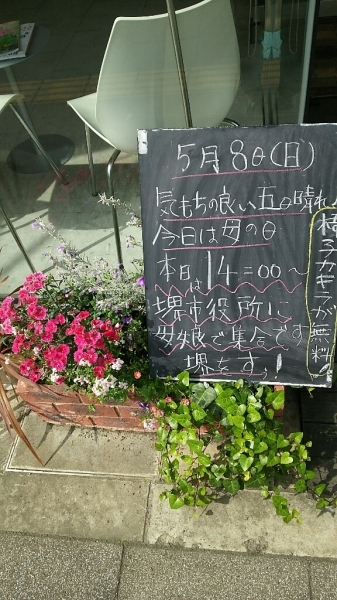 5月8日(日)
気もちの良い五月晴れ
今日は母の日
本日は14:00〜
堺市役所に
女娘で集合です
堺をす、!
椅子カキラが無料